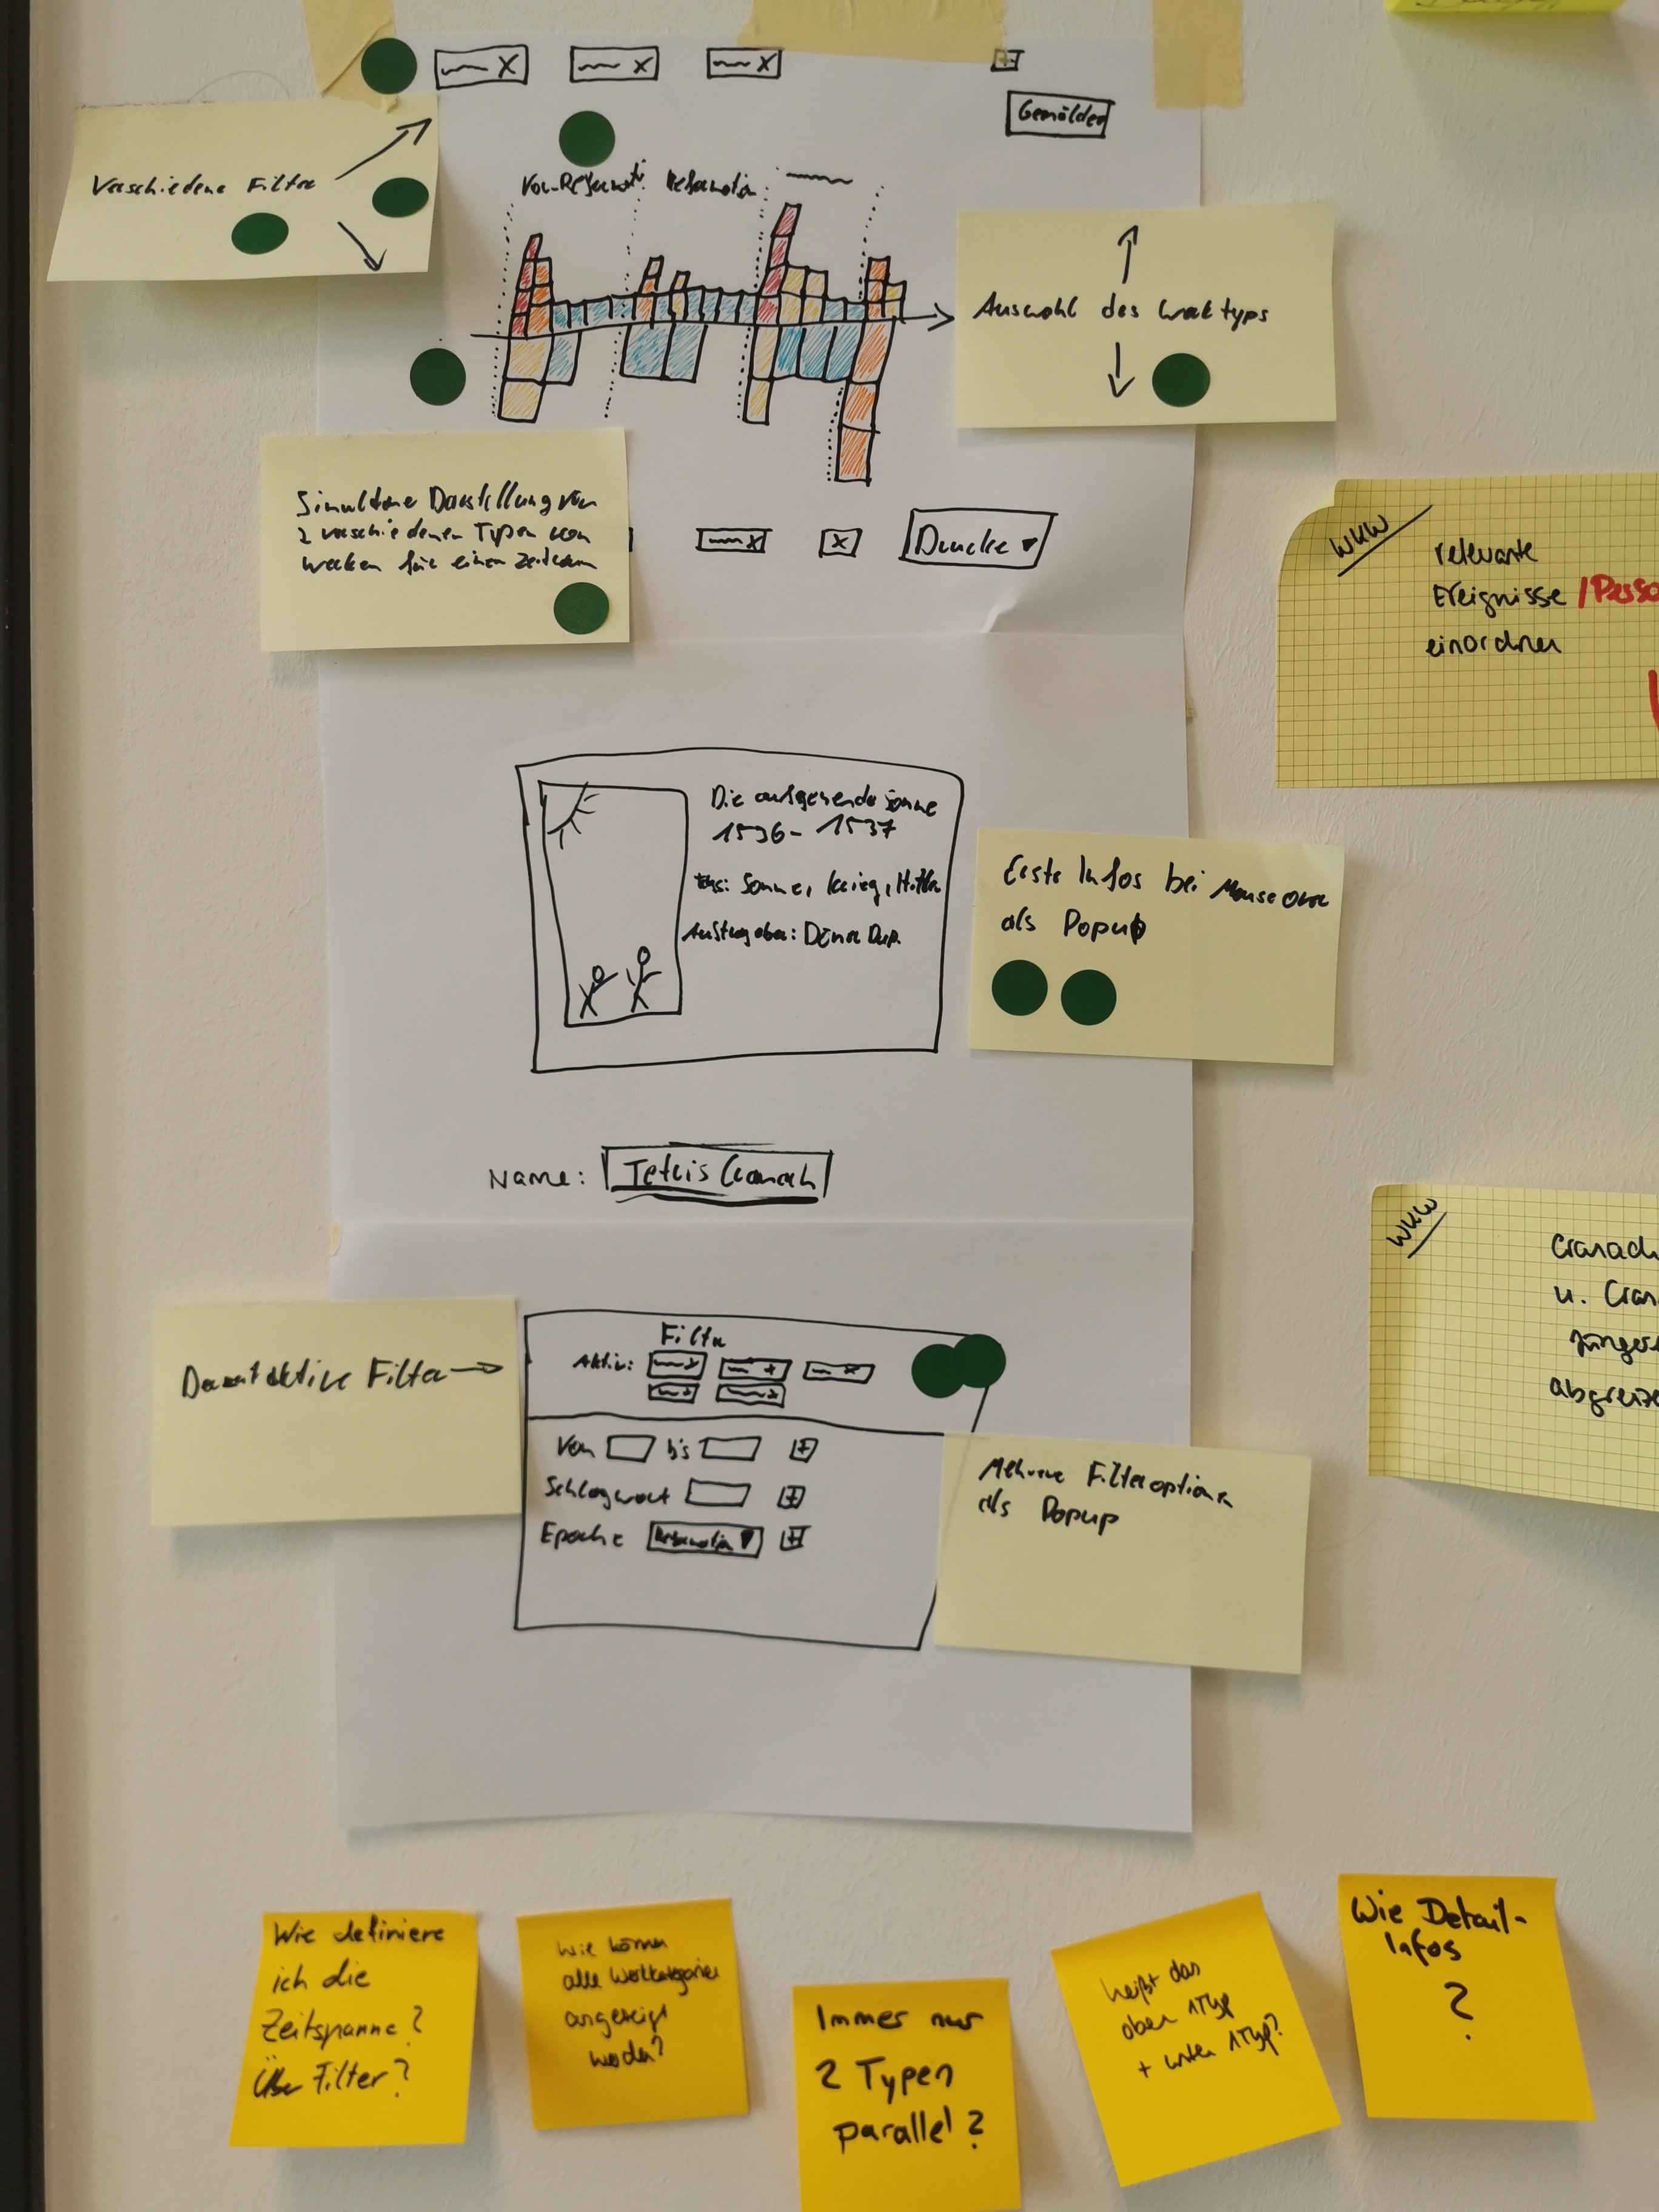 Gemälde
Verschiedene Filter
Vor-Reformati
Reformation
Auswahl des Werktyps
Simultane Darstellung von
2 verschiedenen Typen von
Werken für einen Zeitraum
X
Drucke
WKW
relevante
Ereignisse /Perso
einordnen
Die aufgehende Sonne
1536 - 1537
Tags: Sonne, Krieg,
Auftraggeber:
Erste Infos bei Mouse over
als Popup
Name: Tetris Cranach
WKW
Cranach
u. Cran
jüngere
abgrenze
Filter
Aktiv:
aktive Filter
Von bis +
Schlagwort +
Epoche Reformation +
Mehrere Filteroptionen
als Popup
Wie definiere
ich die
Zeitspanne?
Über Filter?
Wie können
alle Werkkategorien
angezeigt
werden?
Immer nur
2 Typen
parallel?
heißt das
oben 1Typ
+ unten 1Typ?
Wie Detail-
Infos
?